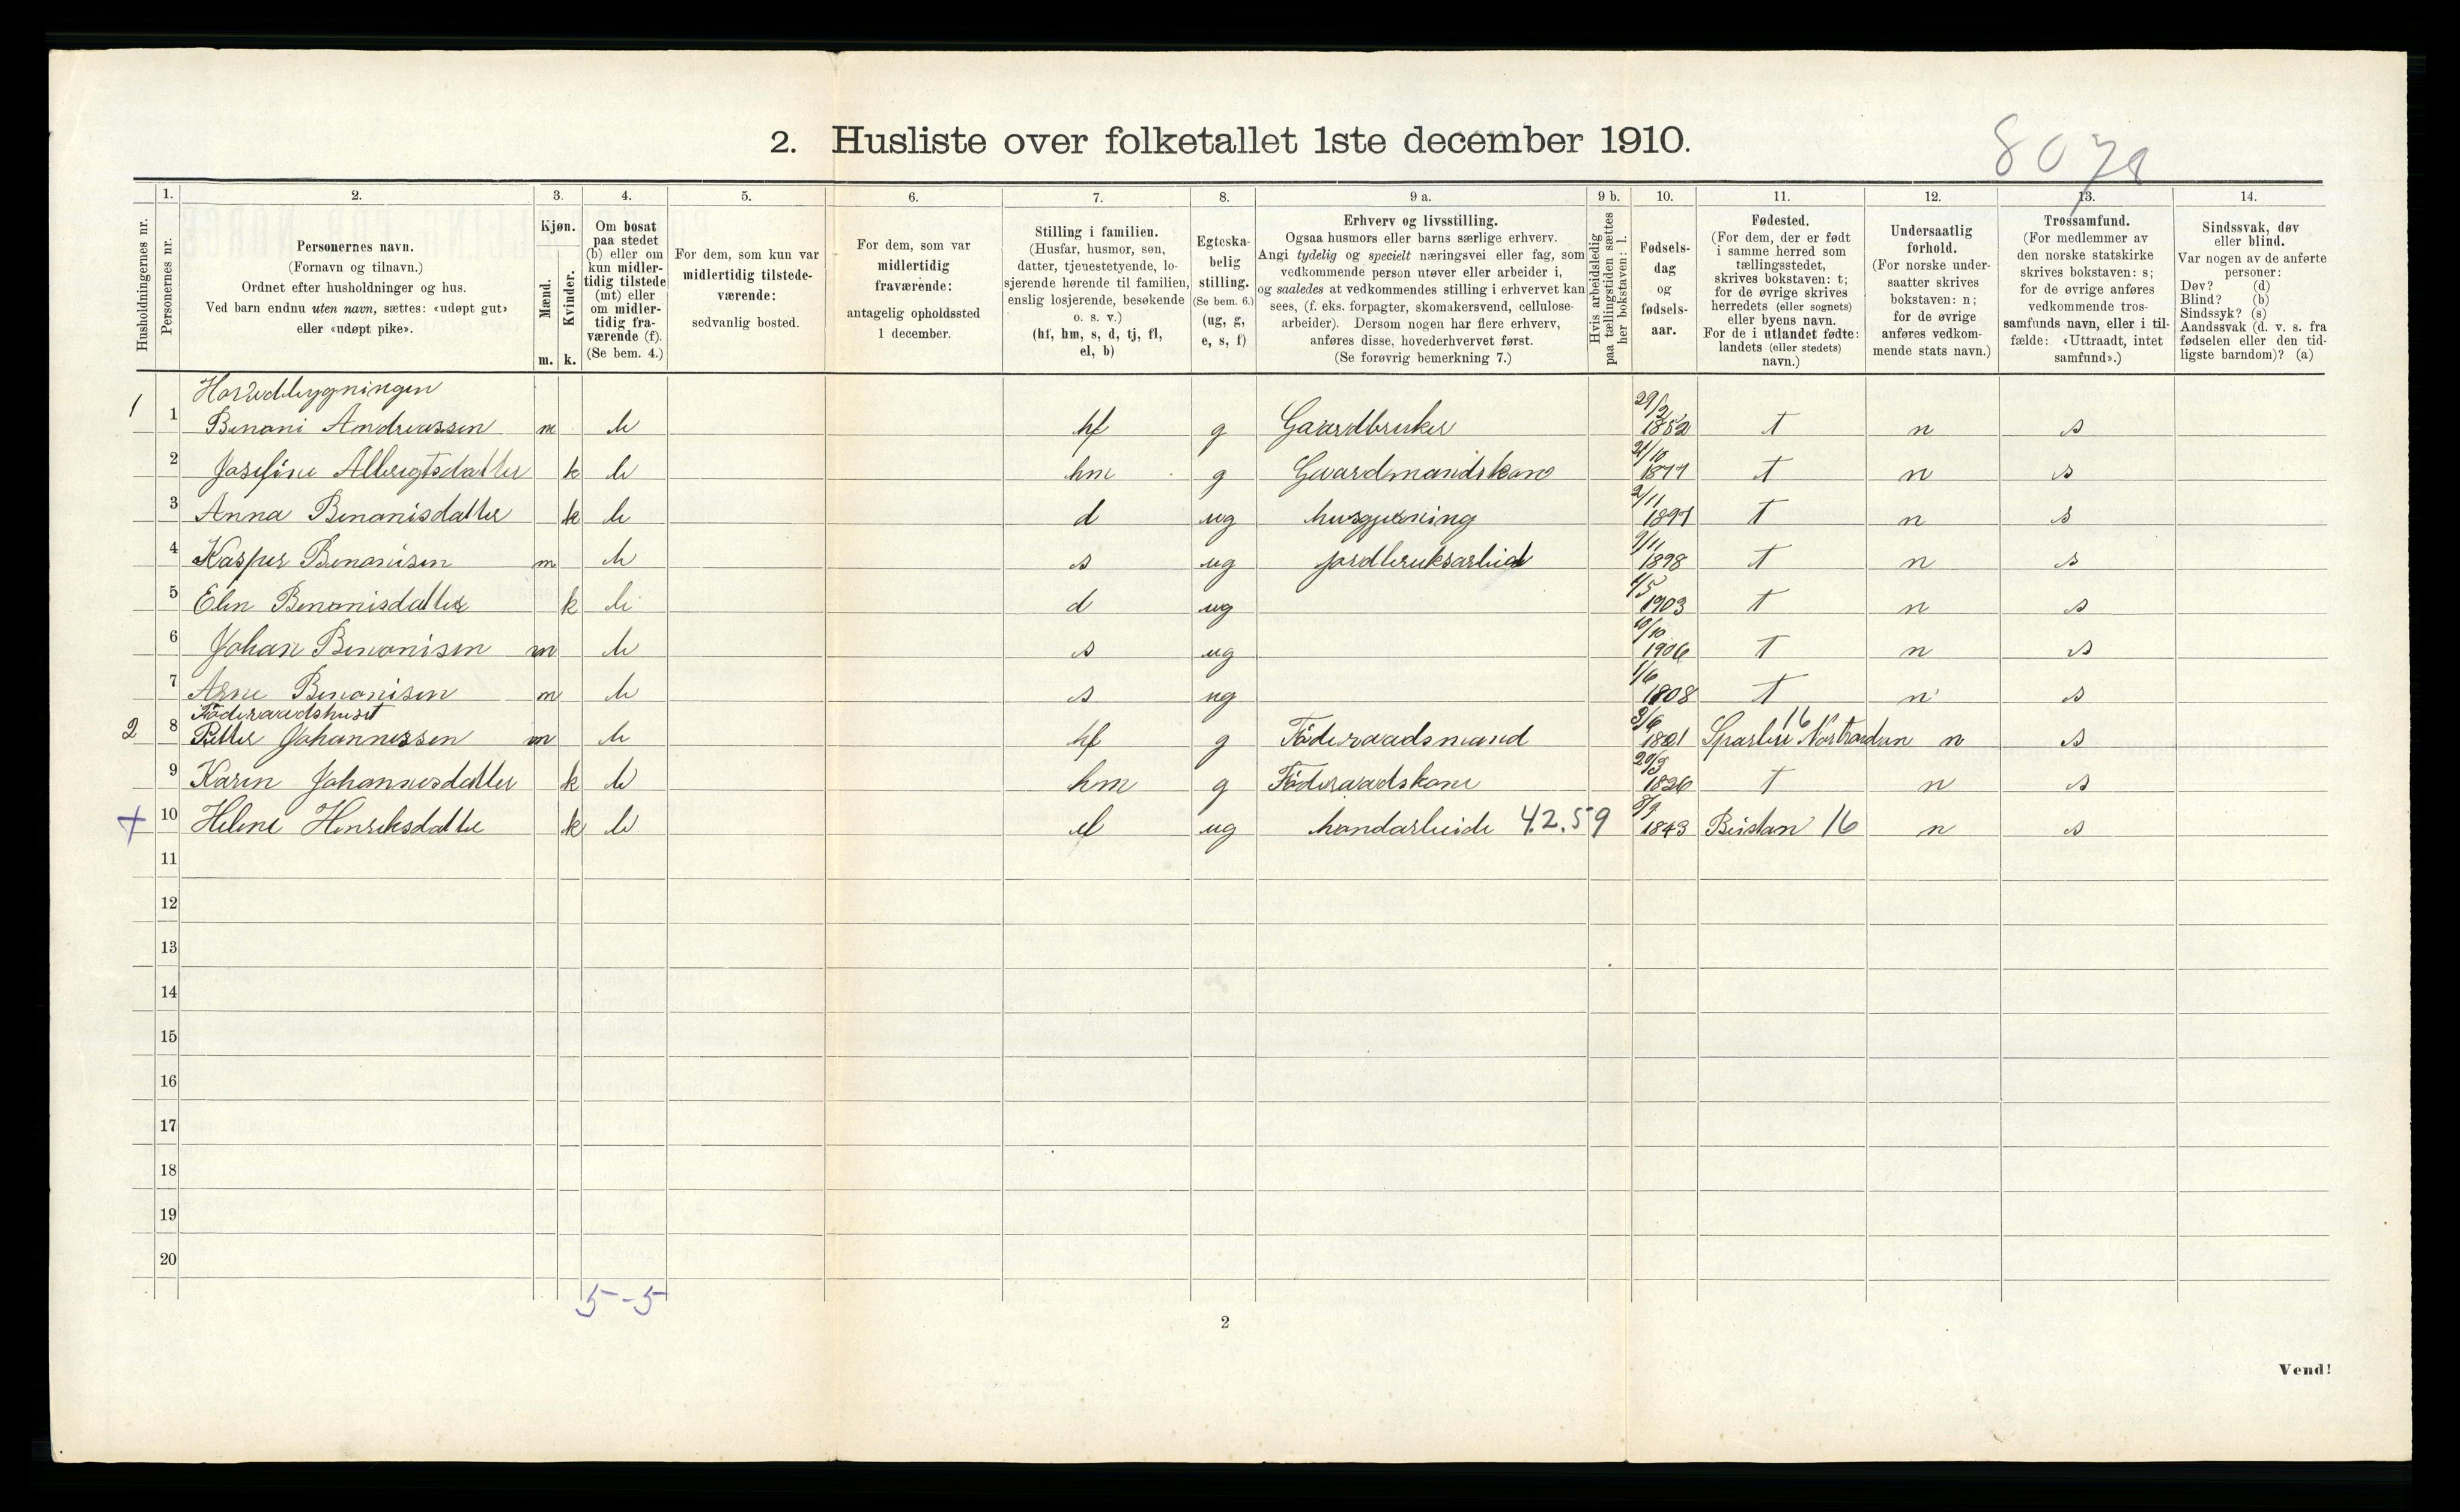 2. Husliste over folketallet 1ste december 1910.
Husholdningernes nr.
1. Personernes nr.
2. Personernes navn. (Fornavn og tilnavn.) Ordnet efter husholdninger og hus. Ved barn endnu uten navn, sættes: «udøpt gut» eller «udøpt pike».
3. Kjøn. Mænd. m. Kvinder. k.
4. Om bosat paa stedet (b) eller om kun midlertidig tilstede (mt) eller om midlertidig fraværende (f). (Se bem. 4.)
5. For dem, som kun var midlertidig tilstedeværende: sedvanlig bosted.
6. For dem, som var midlertidig fraværende: antagelig opholdssted 1 december.
7. Stilling i familien. (Husfar, husmor, søn, datter, tjenestetyende, losjerende hørende til familien, enslig losjerende, besøkende o. s. v.) (hf, hm, s, d, tj, fl, el, b)
8. Egteskabelig stilling. (Se bem. 6.) (ug, g, e, s, f)
9 a. Erhverv og livsstilling. Ogsaa husmors eller barns særlige erhverv. Angi tydelig og specielt næringsvei eller fag, som vedkommende person utøver eller arbeider i, og saaledes at vedkommendes stilling i erhvervet kan sees, (f. eks. forpagter, skomakersvend, cellulosearbeider). Dersom nogen har flere erhverv, anføres disse, hovederhvervet først. (Se forøvrig bemerkning 7.)
9 b. Hvis arbeidsledig paa tællingstiden sættes her bokstaven: l.
10. Fødselsdag og fødselsaar.
11. Fødested. (For dem, der er født i samme herred som tællingsstedet, skrives bokstaven: t; for de øvrige skrives herredets (eller sognets) eller byens navn. For de i utlandet fødte: landets (eller stedets) navn.)
12. Undersaatlig forhold. (For norske undersaatter skrives bokstaven: n; for de øvrige anføres vedkommende stats navn.)
13. Trossamfund. (For medlemmer av den norske statskirke skrives bokstaven: s; for de øvrige anføres vedkommende trossamfunds navn, eller i tilfælde: «Uttraadt, intet samfund».)
14. Sindssvak, døv eller blind. Var nogen av de anførte personer: Døv? (d) Blind? (b) Sindssyk? (s) Aandssvak (d. v. s. fra fødselen eller den tidligste barndom)? (a)
Hovedbygningen
1 1 Benoni Andreassen m b hf g Gaardbruker 29/2 1852 t n s
2 Josefine Albregtsdatter k b hm g Gaardmandskone 21/10 1877 t n s
3 Anna Benonisdatter k b d ug husgjerning 2/11 1897 t n s
4 Kasper Benonisen m b s ug jordbruksarbeid 9/11 1898 t n s
5 Elen Benonisdatter k b d ug 1/5 1903 t n s
6 Johan Benonisen m b s ug 10/10 1906 t n s
7 Arne Benonisen m b s ug 1/6 1908 t n s
Föderaadshuset
2 8 Petter Johannessen m b hf g Föderaadsmand 3/6 1821 Sparbu 16 n s
9 Karen Johannesdatter k b hm g Föderaadskone 20/3 1826 t n s
+ 10 Helene Henriksdatte k b el ug handarbeide 42.59 8/9 1843 Beistan 16 n s
11
12
13
14
15
16
17
18
19
20
5-5
2
Vend!